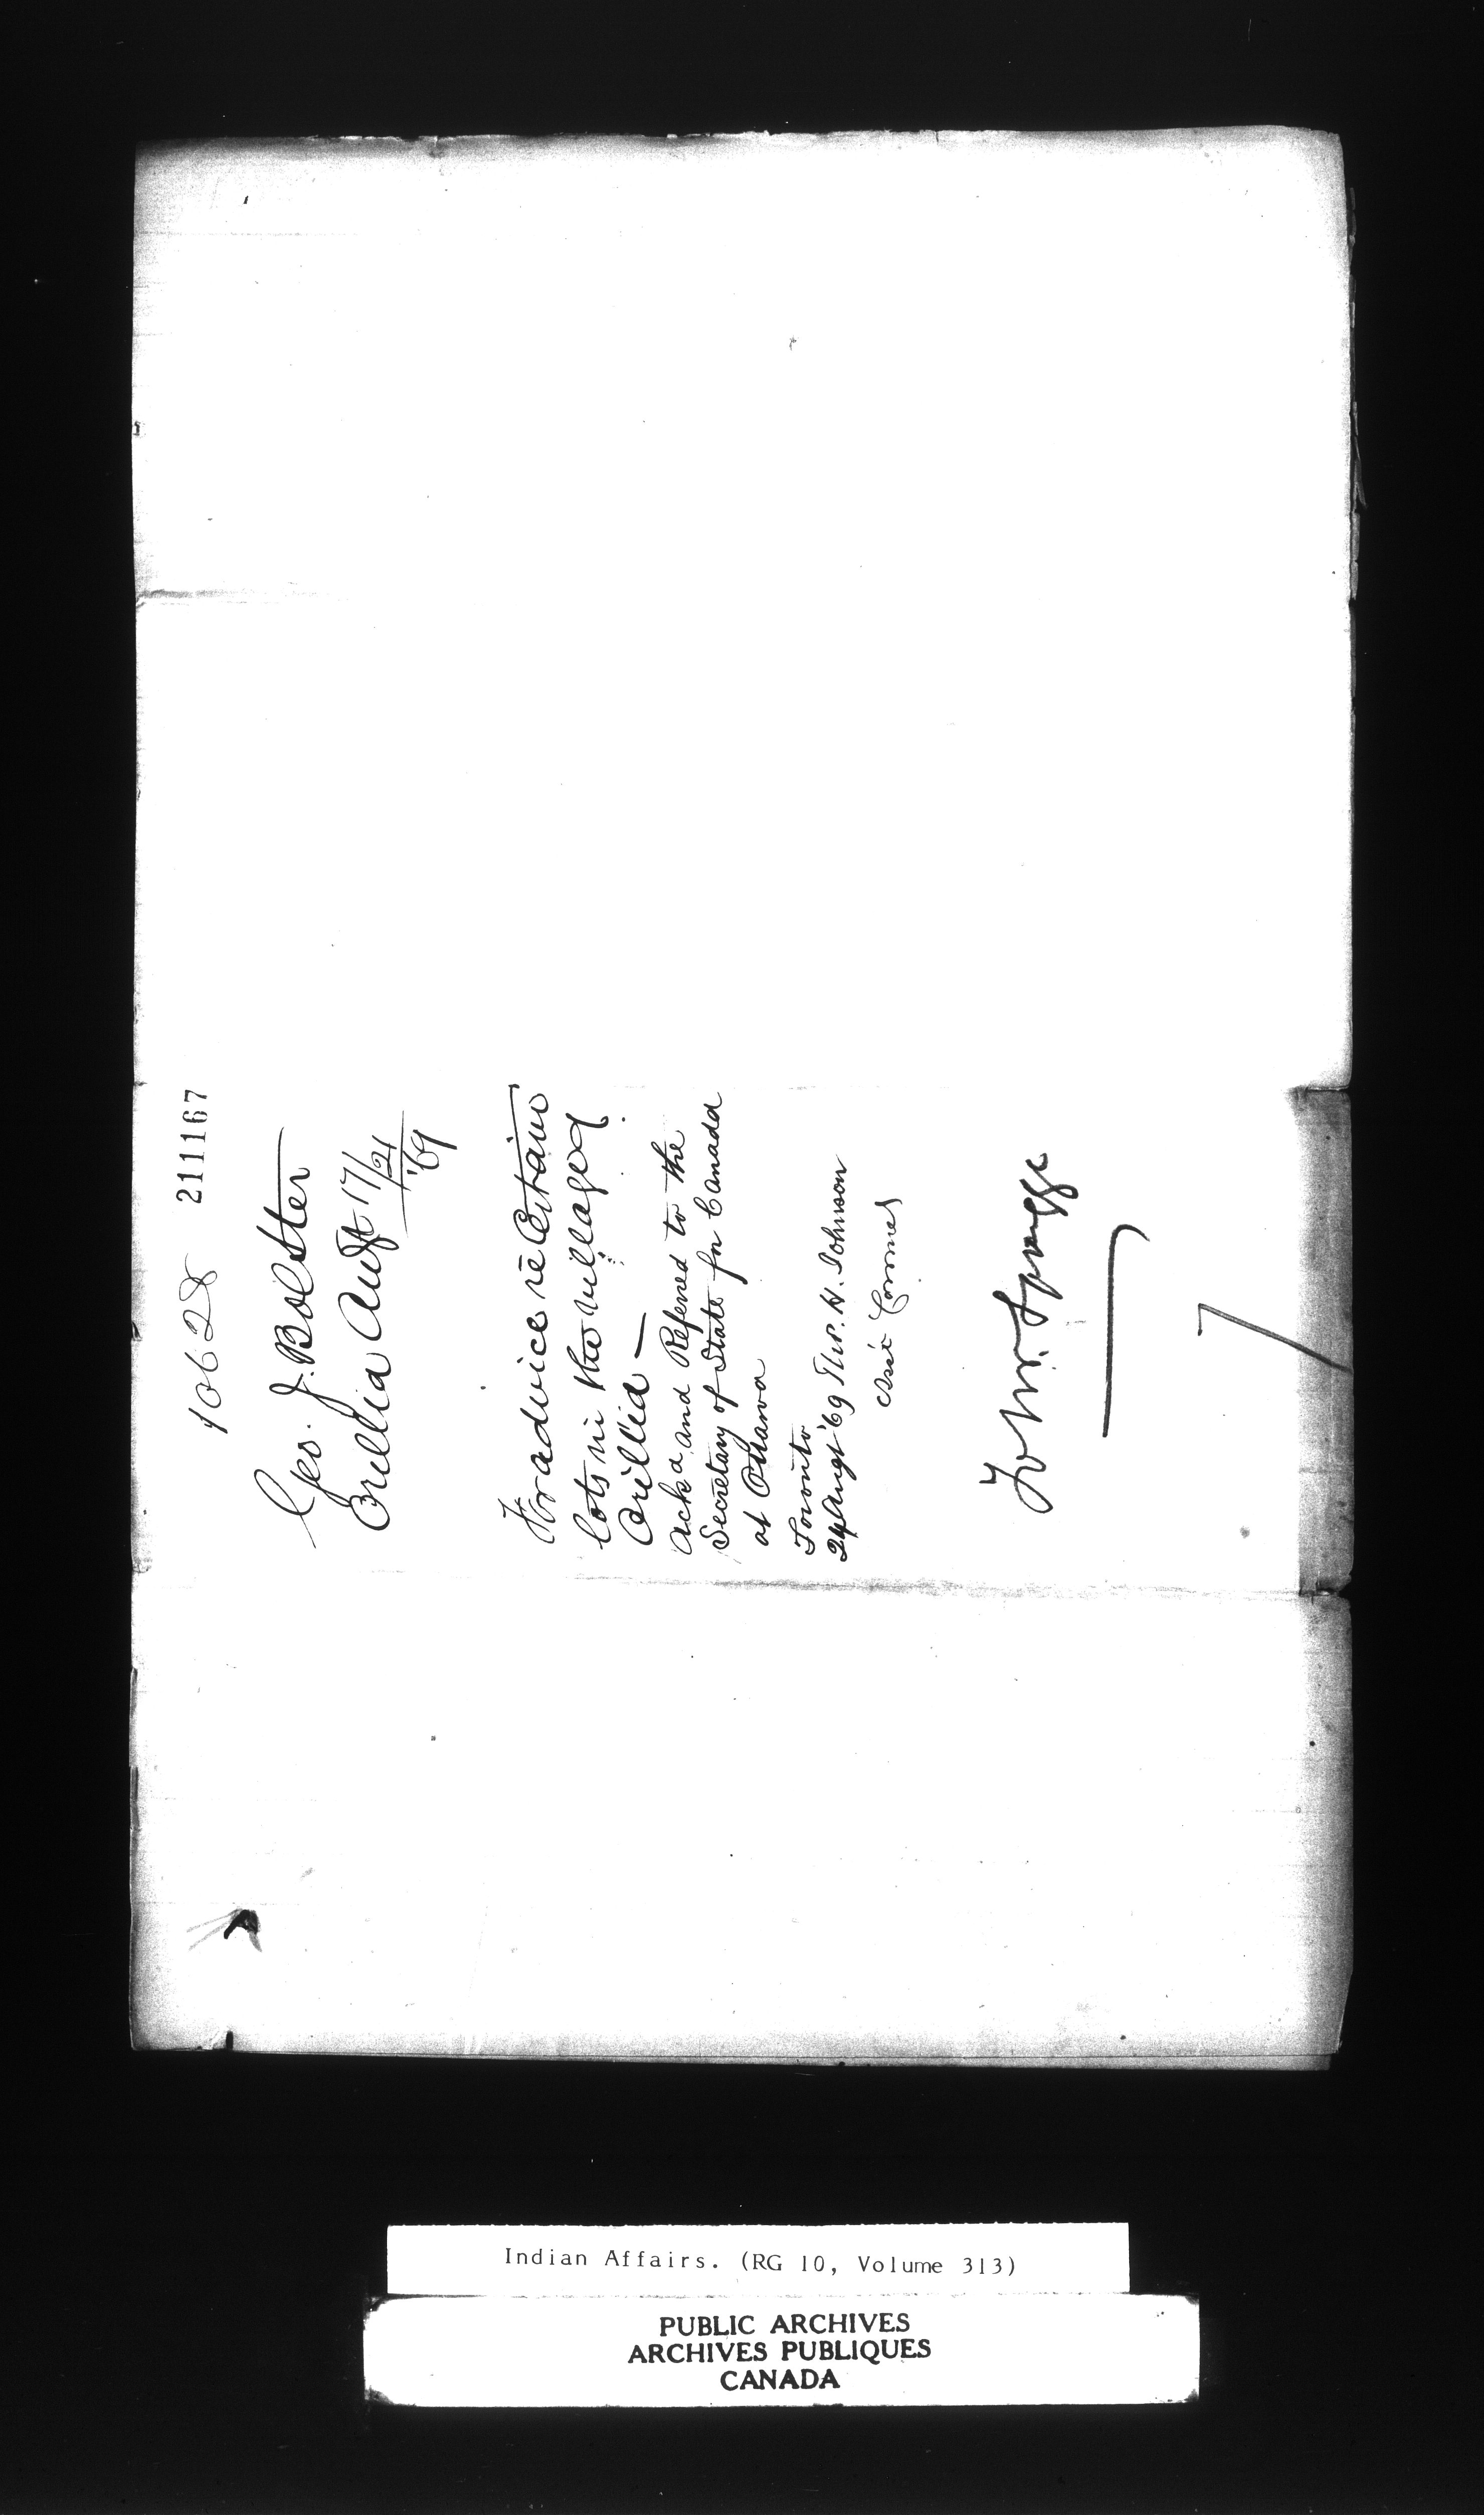 1062
211167
Geo. J. Bolster
Orillia Augt 17/21
'69
For advice re certain
lots in the village of
Orillia —
Ackd and Referred to the
Secretary of State for Canada
at Ottawa
Toronto
24 Augt '69 H. Johnson
Asst Commr
To Mr. Spragge
Indian Affairs. (RG 10, Volume 313)
PUBLIC ARCHIVES
ARCHIVES PUBLIQUES
CANADA